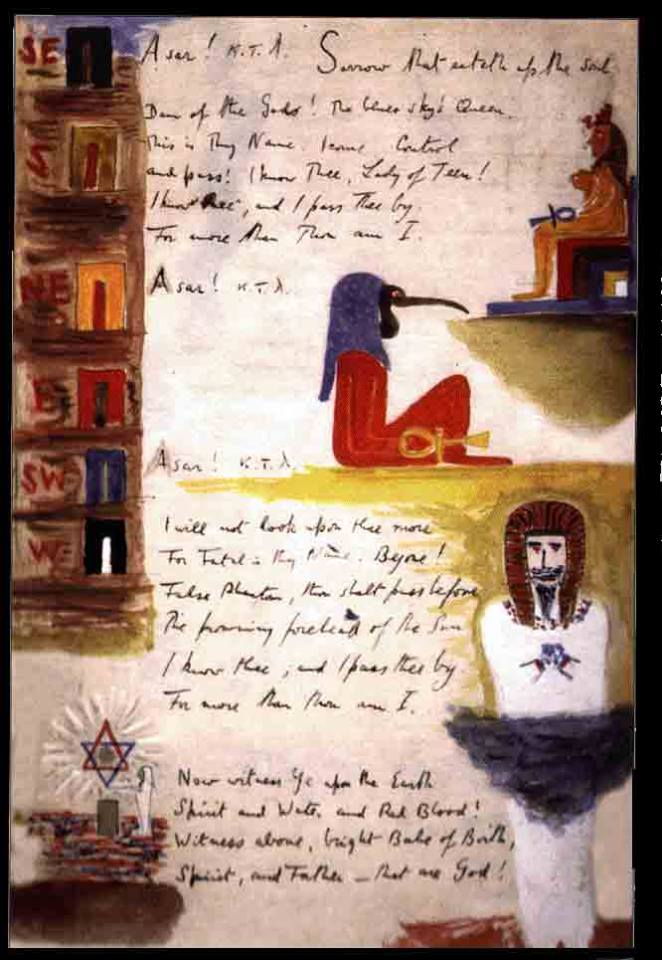 SE
S
NE
E
SW
W
Asar! κ.τ.λ. Sorrow that eateth up the Soul
Dam of the Gods! The blue sky's Queen.
This is Thy Name. I come. Control
and pass! I know Thee, Lady of Teen!
I know Thee, and I pass Thee by.
For more than Thou am I.
Asar! κ.τ.λ.
Asar! κ.τ.λ.
I will not look upon thee more
For Fatal is Thy Name. Begone!
False Phantom, thou shalt pass before
The frowning forehead of the Sun
I know thee; and I pass thee by
For more than Thou am I.
Now witness Ye upon the Earth
Spirit and Water and Red Blood!
Witness above, bright Babe of Birth,
Spirit, and Father — that are God!